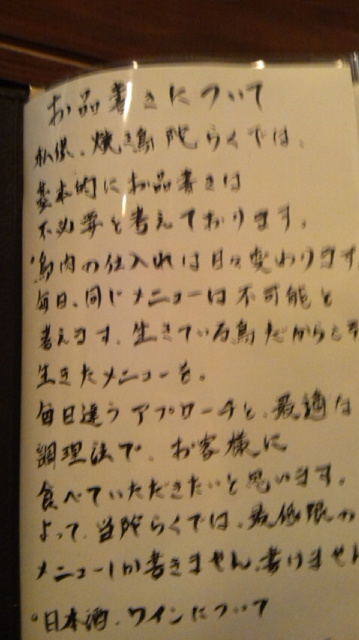 お品書きについて
私供、焼き鳥 院 らくでは、
基本的にお品書きは
不必要と考えております。
鳥肉の仕入れは日々変わります
毎日、同じメニューは不可能と
考えます。生きている鳥だからこそ
生きたメニューを。
毎日違うアプローチと、最適な
調理法で、お客様に
食べていただきたいと思います。
よって、当院らくでは、最低限の
メニューしか書きません、書けません
°日本酒、ワインについて